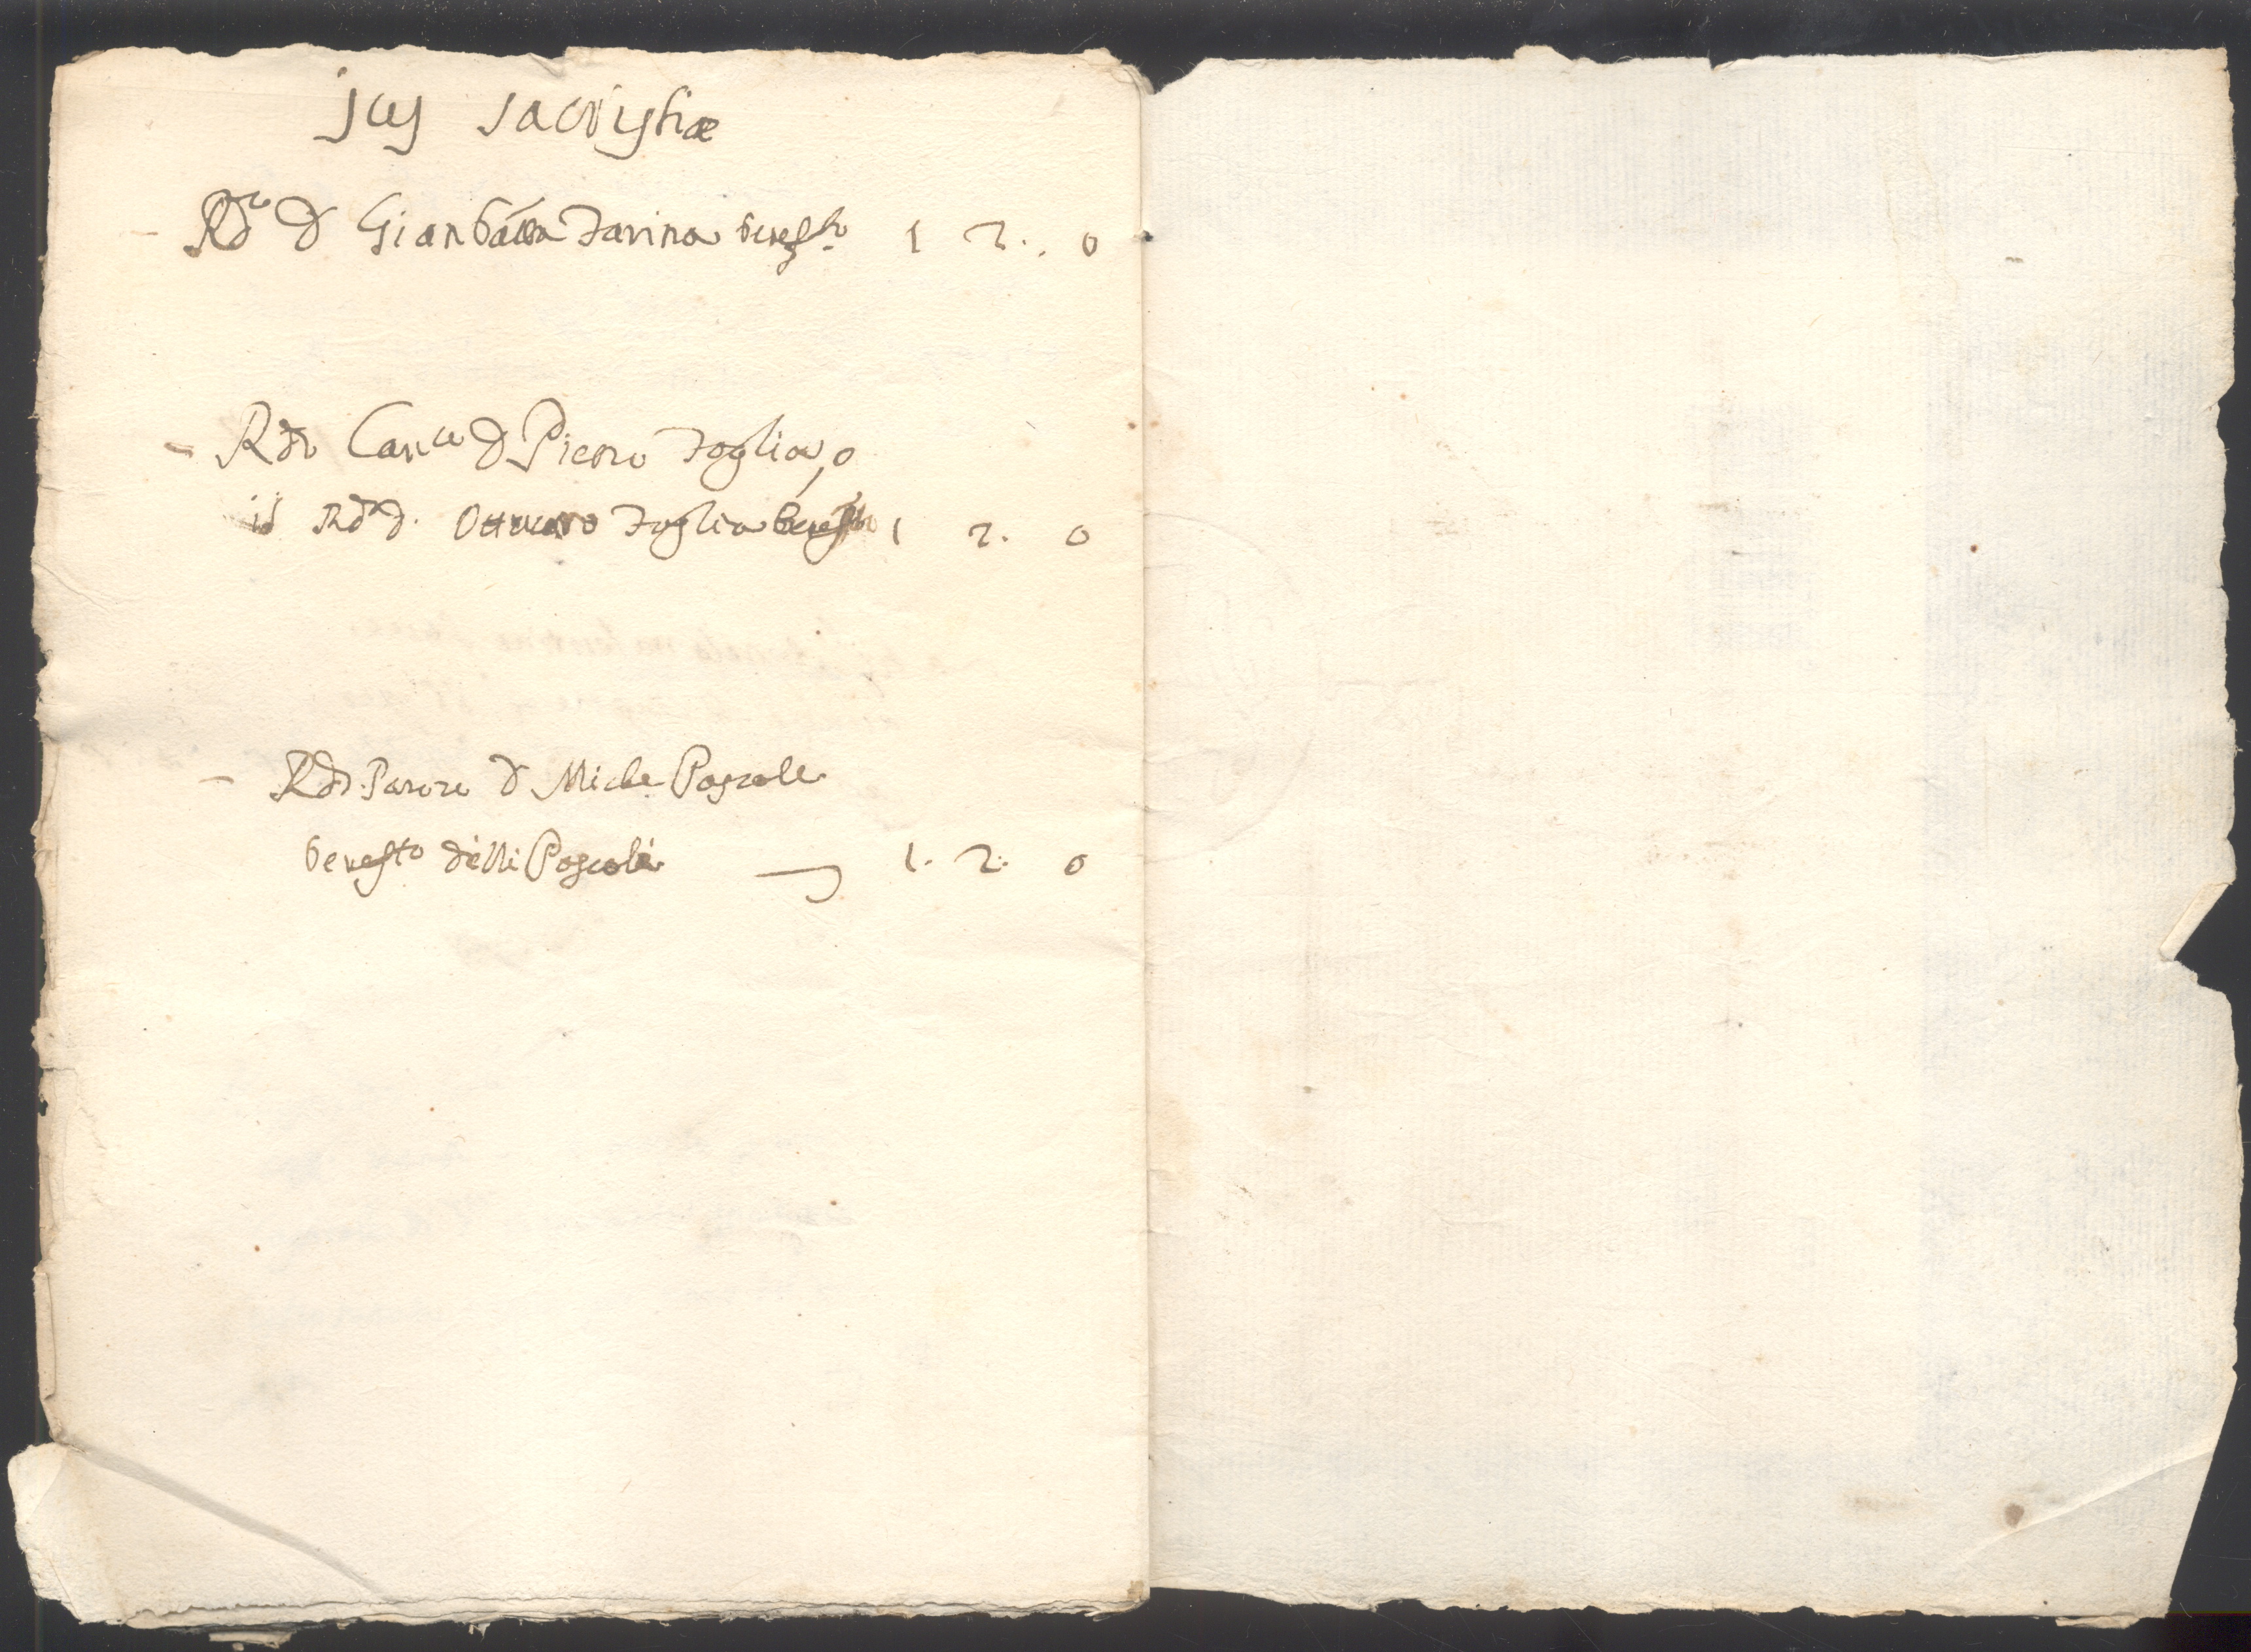 jus sacristiæ
- Rdo D Gianbatta Farina benefto 1 2. 0
- Rdo Canco D Pietro Foglia, o
il Rdo d. Foglia benefto 1 2. 0
- Rdo. D Miche Pascale
benefto delli Pascali 1. 2. 0